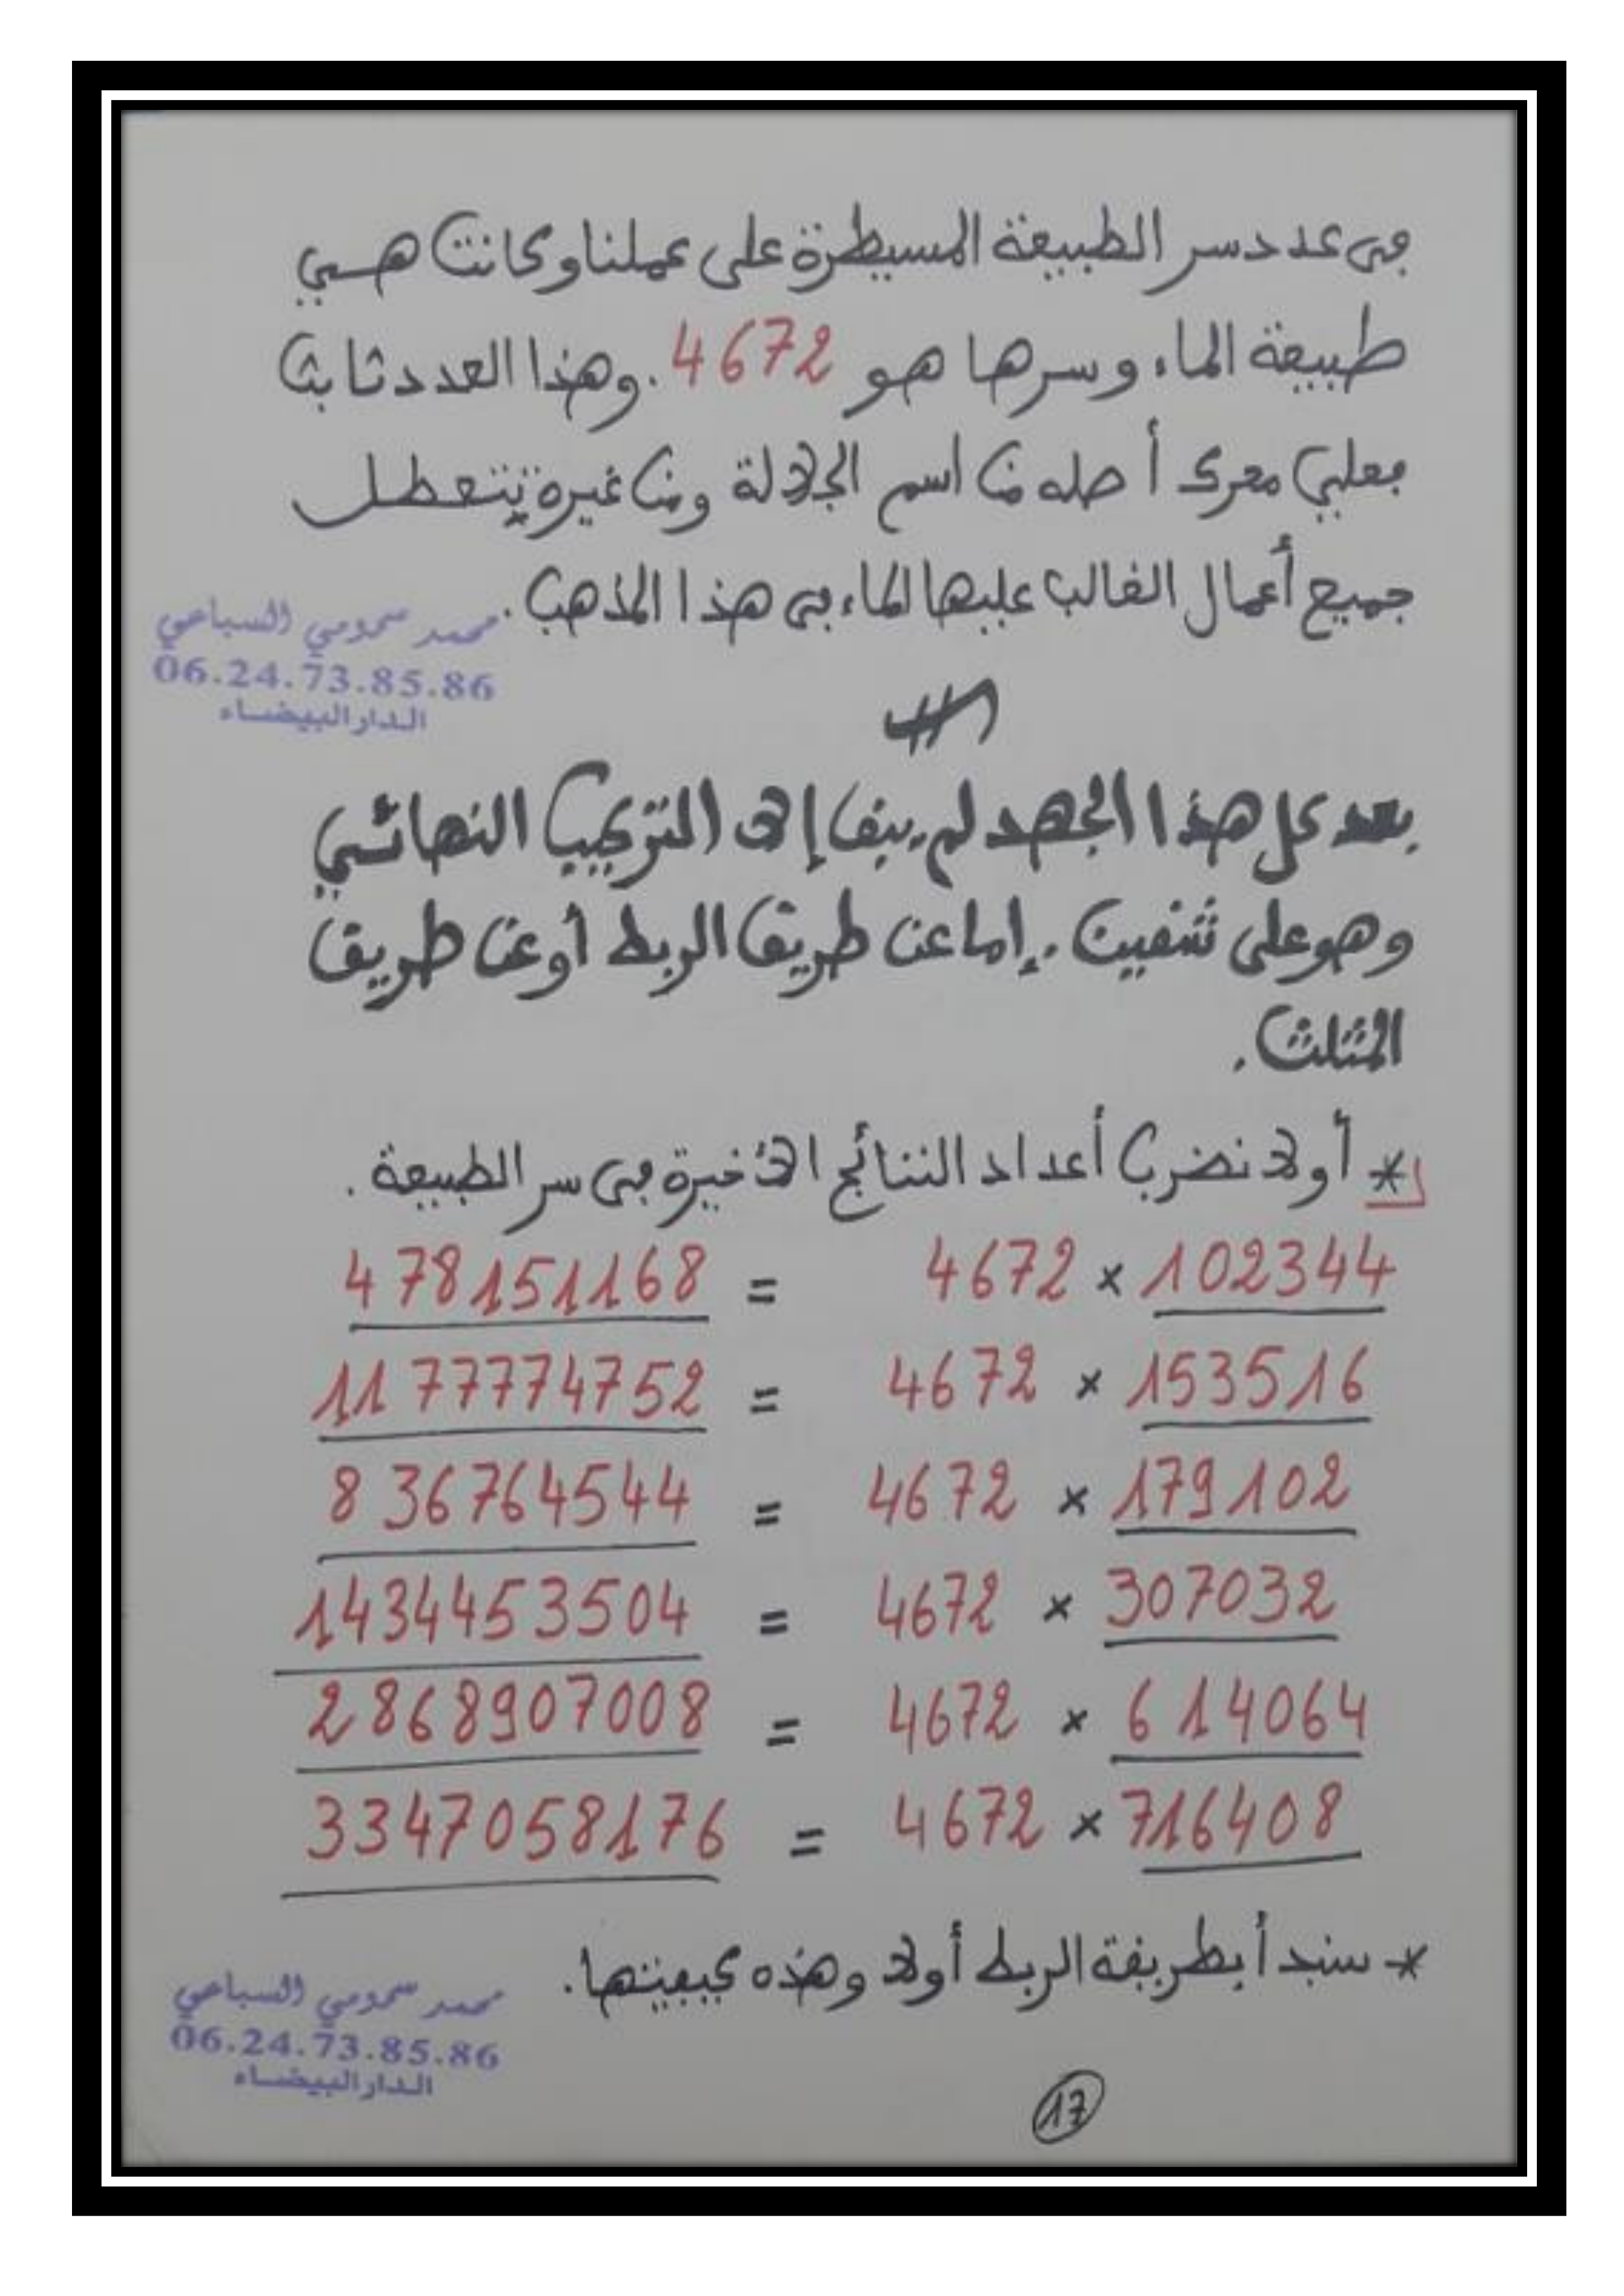 في عدد سر الطبيعة المسيطرة على عملنا وكانت هي
طبيعة الماء وسرها هو 4672. وهذا العدد ثابت
فعلي معرك أصله من اسم الجلالة ومن غيره يتعطل
جميع أعمال الغالب عليها الماء في هذا المذهب.
محمد سمومي السباعي
06.24.73.85.86
الدار البيضاء
بعد كل هذا الجهد لم يبق إلا التركيب النهائي
وهو على شقين. إما عن طريق الربط أو عن طريق
المثلث.
* أولا نضرب أعداد النتائج الأخيرة في سر الطبيعة.
478151168 = 4672 × 102344
1177774752 = 4672 × 153516
836764544 = 4672 × 179102
1434453504 = 4672 × 307032
2868907008 = 4672 × 614064
3347058176 = 4672 × 716408
* سنبدأ بطريقة الربط أولا وهذه كيفيتها.
محمد سمومي السباعي
06.24.73.85.86
الدار البيضاء
17